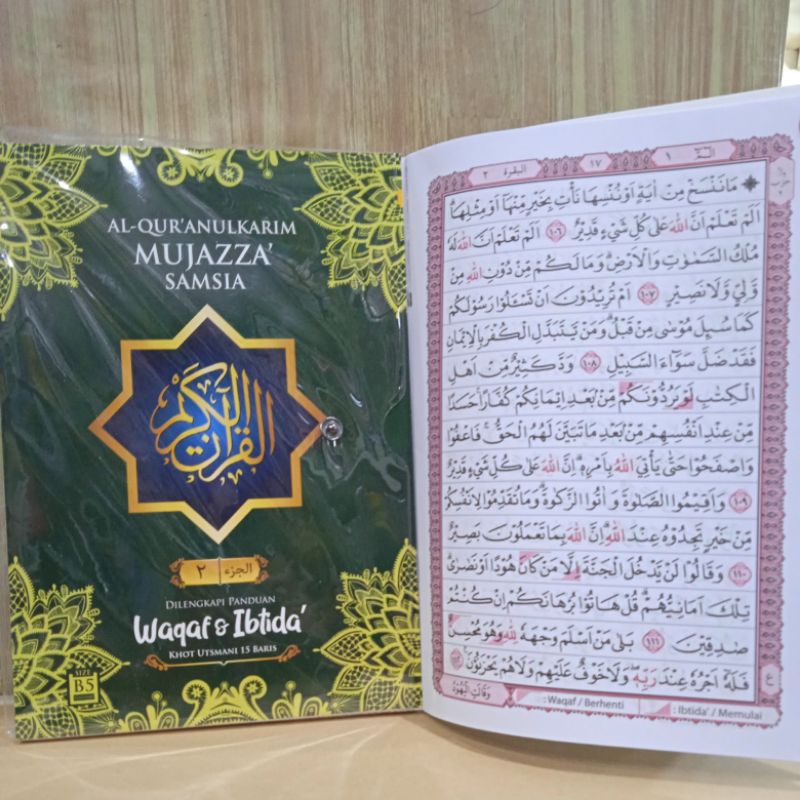 AL-QUR'ANULKARIM
MUJAZZA'
SAMSIA
القرآن الكريم
الجزء ٢
DILENGKAPI PANDUAN
Waqaf & Ibtida'
KHOT UTSMANI 15 BARIS
SIZE
B5
البقرة ٢
١٧
١
مَا نَنْسَخْ مِنْ اٰيَةٍ اَوْ نُنْسِهَا نَأْتِ بِخَيْرٍ مِّنْهَآ اَوْ مِثْلِهَا ۗ
اَلَمْ تَعْلَمْ اَنَّ اللّٰهَ عَلٰى كُلِّ شَيْءٍ قَدِيْرٌ ١٠٦ اَلَمْ تَعْلَمْ اَنَّ اللّٰهَ لَهٗ
مُلْكُ السَّمٰوٰتِ وَالْاَرْضِ ۗ وَمَا لَكُمْ مِّنْ دُوْنِ اللّٰهِ مِنْ
وَّلِيٍّ وَّلَا نَصِيْرٍ ١٠٧ اَمْ تُرِيْدُوْنَ اَنْ تَسْـَٔلُوْا رَسُوْلَكُمْ
كَمَا سُىِٕلَ مُوْسٰى مِنْ قَبْلُ ۗ وَمَنْ يَّتَبَدَّلِ الْكُفْرَ بِالْاِيْمَانِ
فَقَدْ ضَلَّ سَوَاۤءَ السَّبِيْلِ ١٠٨ وَدَّ كَثِيْرٌ مِّنْ اَهْلِ
الْكِتٰبِ لَوْ يَرُدُّوْنَكُمْ مِّنْۢ بَعْدِ اِيْمَانِكُمْ كُفَّارًا ۚ حَسَدًا
مِّنْ عِنْدِ اَنْفُسِهِمْ مِّنْۢ بَعْدِ مَا تَبَيَّنَ لَهُمُ الْحَقُّ ۚ فَاعْفُوْا
وَاصْفَحُوْا حَتّٰى يَأْتِيَ اللّٰهُ بِاَمْرِهٖ ۗ اِنَّ اللّٰهَ عَلٰى كُلِّ شَيْءٍ قَدِيْرٌ
١٠٩ وَاَقِيْمُوا الصَّلٰوةَ وَاٰتُوا الزَّكٰوةَ ۗ وَمَا تُقَدِّمُوْا لِاَنْفُسِكُمْ
مِّنْ خَيْرٍ تَجِدُوْهُ عِنْدَ اللّٰهِ ۗ اِنَّ اللّٰهَ بِمَا تَعْمَلُوْنَ بَصِيْرٌ
١١٠ وَقَالُوْا لَنْ يَّدْخُلَ الْجَنَّةَ اِلَّا مَنْ كَانَ هُوْدًا اَوْ نَصٰرٰى ۗ
تِلْكَ اَمَانِيُّهُمْ ۗ قُلْ هَاتُوْا بُرْهَانَكُمْ اِنْ كُنْتُمْ
صٰدِقِيْنَ ١١١ بَلٰى مَنْ اَسْلَمَ وَجْهَهٗ لِلّٰهِ وَهُوَ مُحْسِنٌ
فَلَهٗٓ اَجْرُهٗ عِنْدَ رَبِّهٖۖ وَلَا خَوْفٌ عَلَيْهِمْ وَلَا هُمْ يَحْزَنُوْنَ ١١٢
ع
وَقَالَتِ الْيَهُوْدُ
: Waqaf / Berhenti
: Ibtida' / Memulai